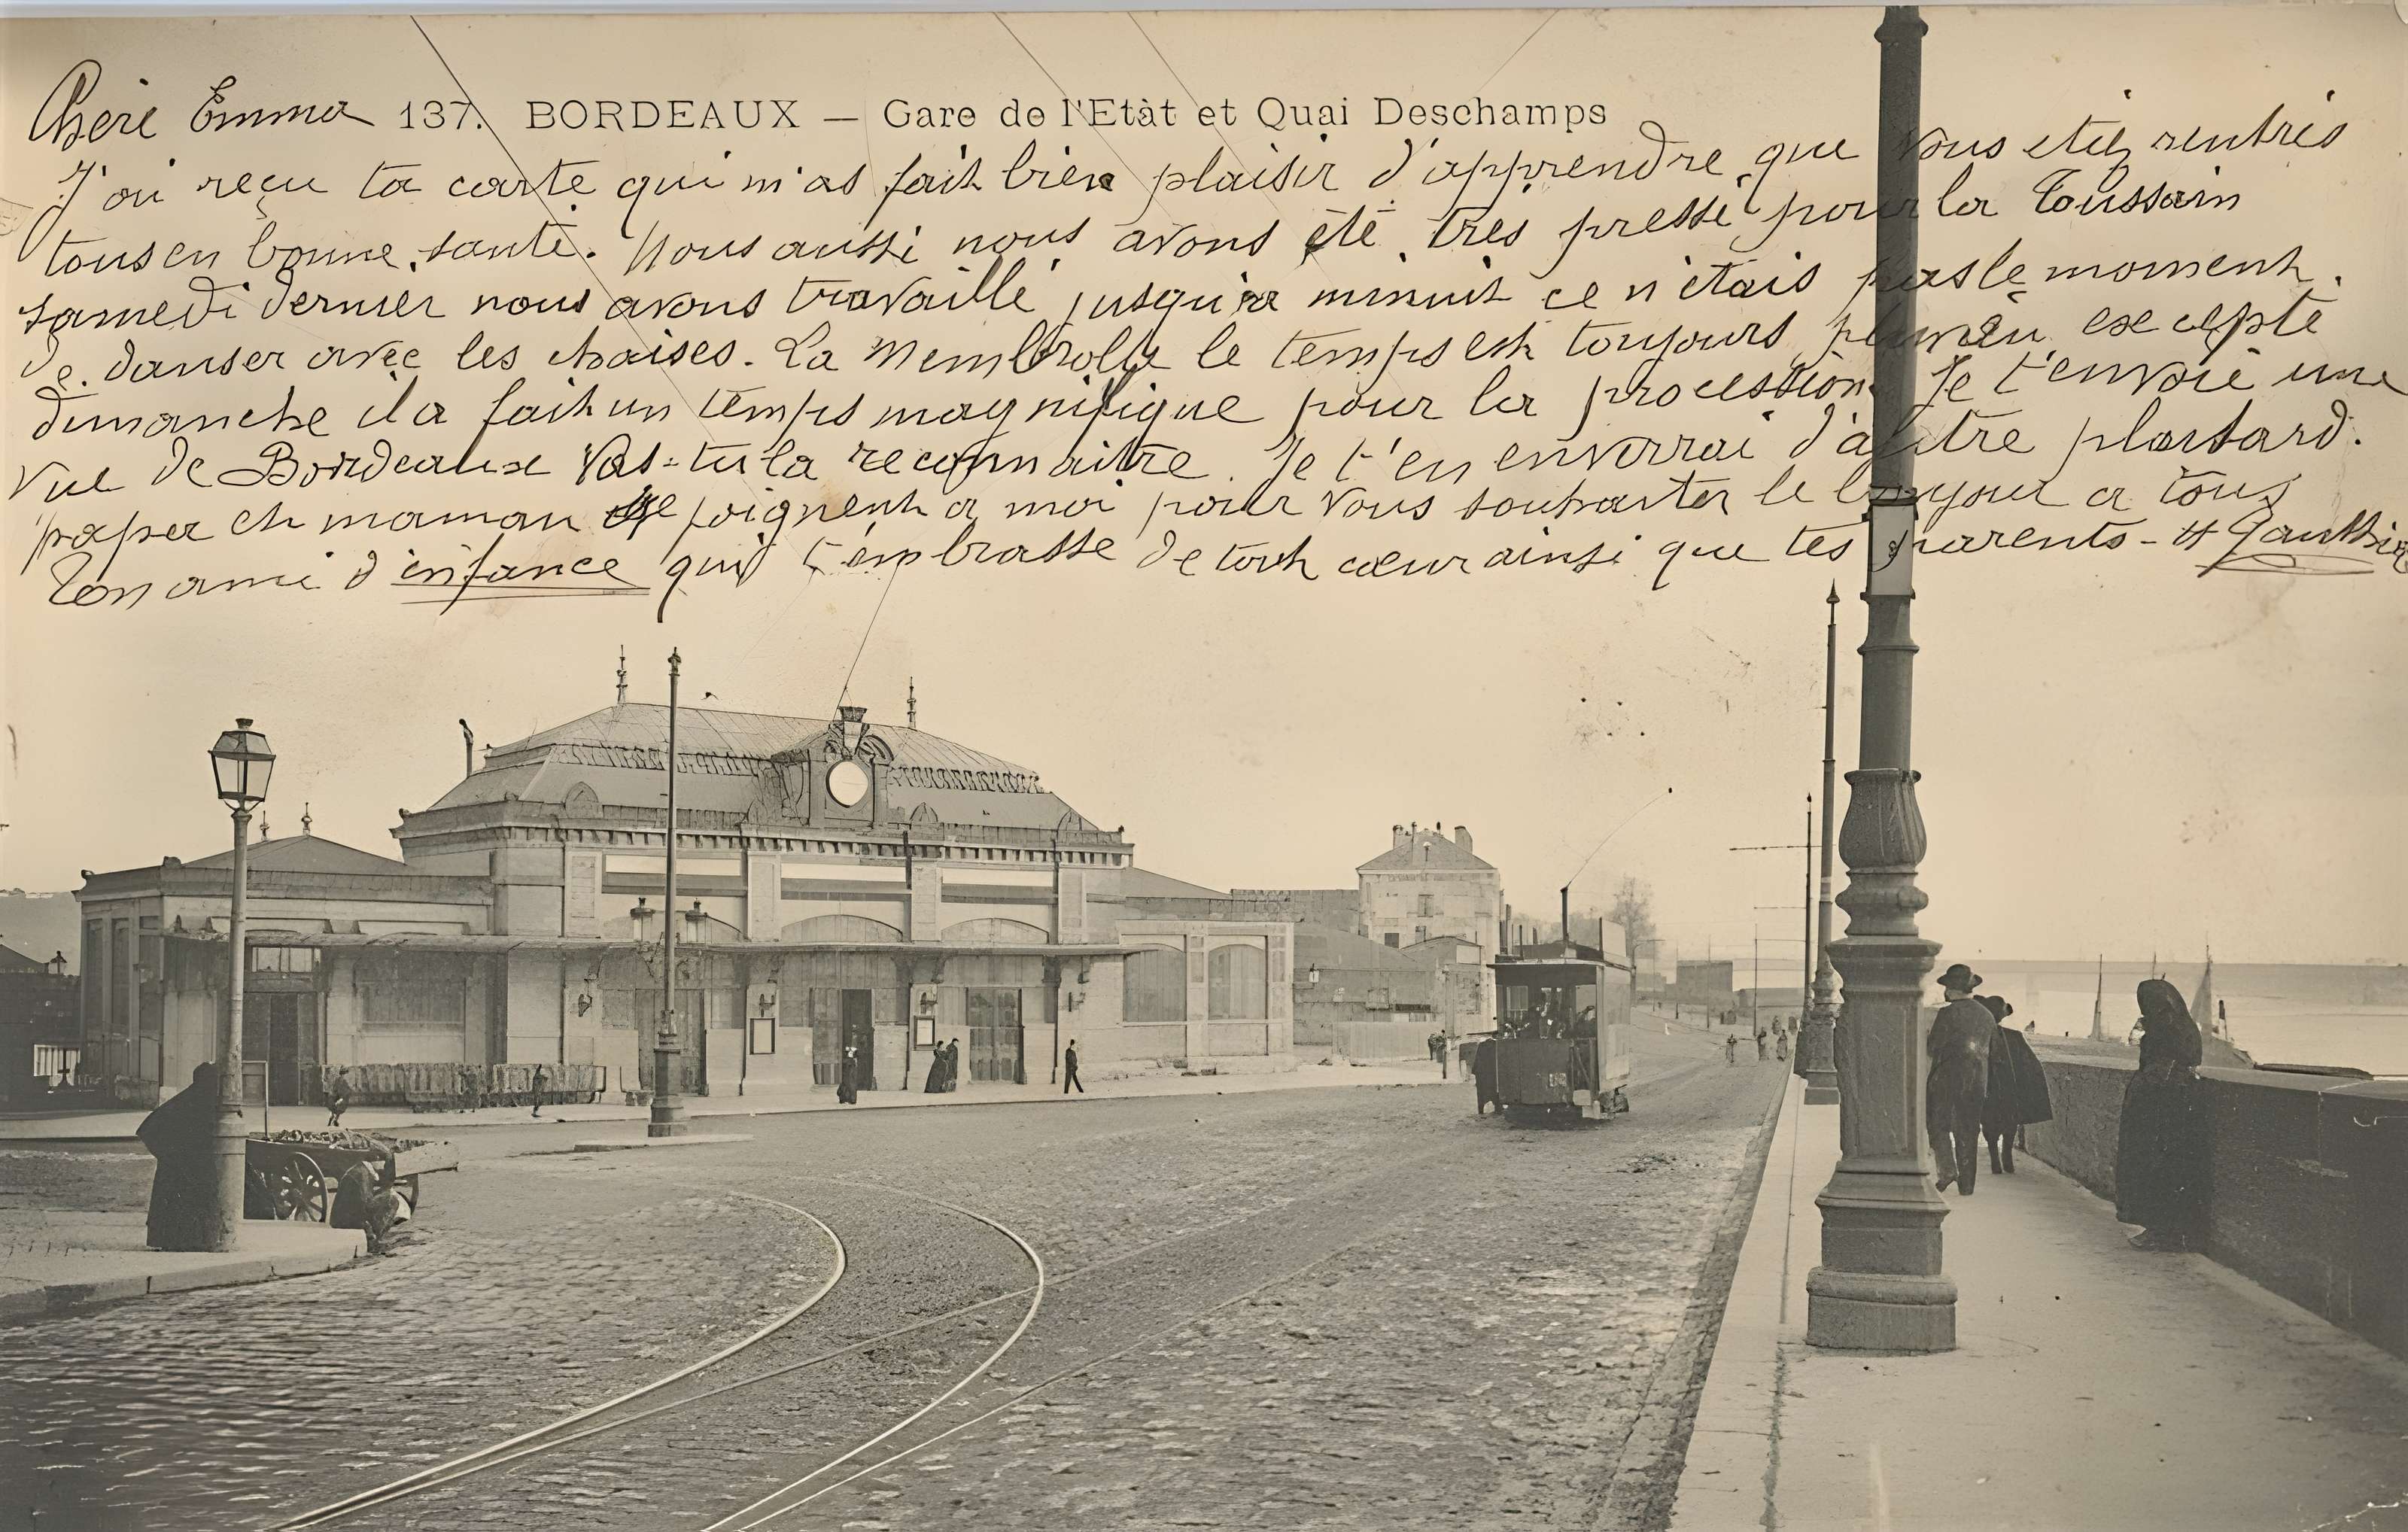 Chère Emma 137. BORDEAUX — Gare de l'Etàt et Quai Deschamps
J'ai reçu ta carte qui m'as fait bien plaisir d'apprendre que vous etiez rentrés
tous en bonne santé. Nous aussi nous avons été tres pressé pour la Toussain
samedi dernier nous avons travaillé jusqu'a minuit ce n'étais pas le moment
de danser avec les chaises. La Membrolle le temps est toujours excepté
dimanche il a fait un temps magnifique pour la procession. Je t'envoie une
vue de Bordeaux Vas-tu la reconnaitre. Je t'en enverrai d'autre plus tard.
papa et maman se joignent a moi pour vous souhaiter le bonjour a tous
Ton ami d'enfance qui t'embrasse de tout cœur ainsi que tes parents - H Gauthier